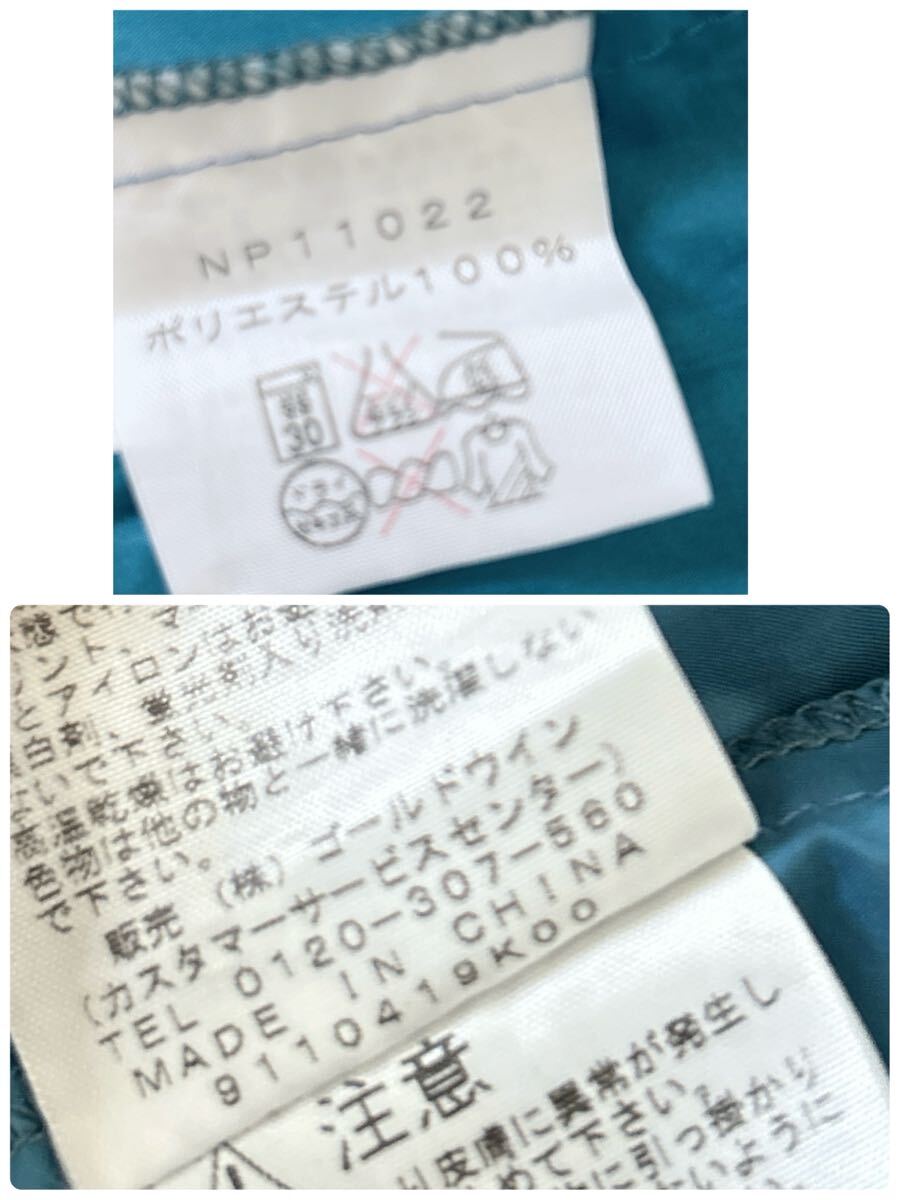 NP11022
ポリエステル100%
30
ドライ
で、マ
ント、
アイロンはお
剤、蛍光剤入り洗
で下さい。
温乾燥はお避け下さい。
物は他の物と一緒に洗濯しない
で下さい。
販売 (株) ゴールドウイン
(カスタマーサービスセンター)
TEL 0120-307-560
MADE IN CHINA
9110419K00
注意
皮膚に異常が発生し
めて下さい。
に引っ掛かり
ないように